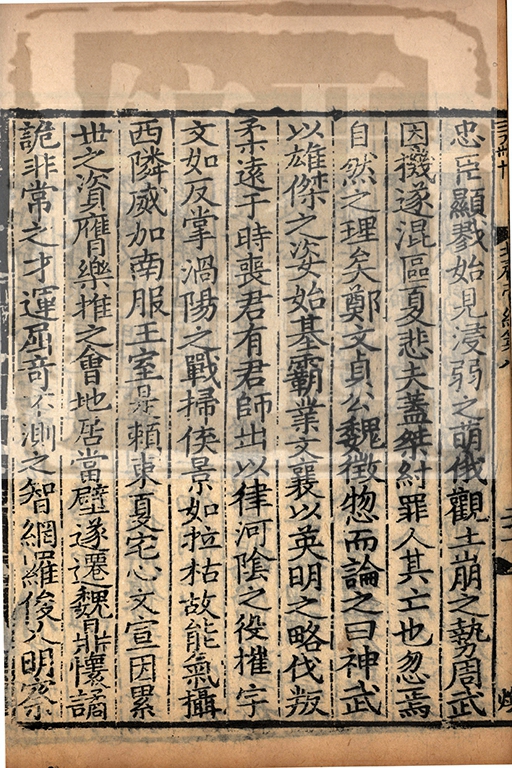 忠臣顯戮始見浸弱之萌俄觀土崩之勢周武
因機遂混區夏悲夫蓋桀紂罪人其亡也忽焉
自然之理矣鄭文貞公魏徵惣而論之曰神武
以雄傑之姿始基霸業文襄以英明之略伐叛
柔遠于時喪君有君師出以律河陰之役摧宇
文如反掌渦陽之戰掃侯景如拉枯故能氣攝
西隣威加南服王室是賴東夏宅心文宣因累
世之資膺樂推之會地居當璧遂遷魏鼎懷譎
詭非常之才運屈奇不測之智網羅俊乂明察